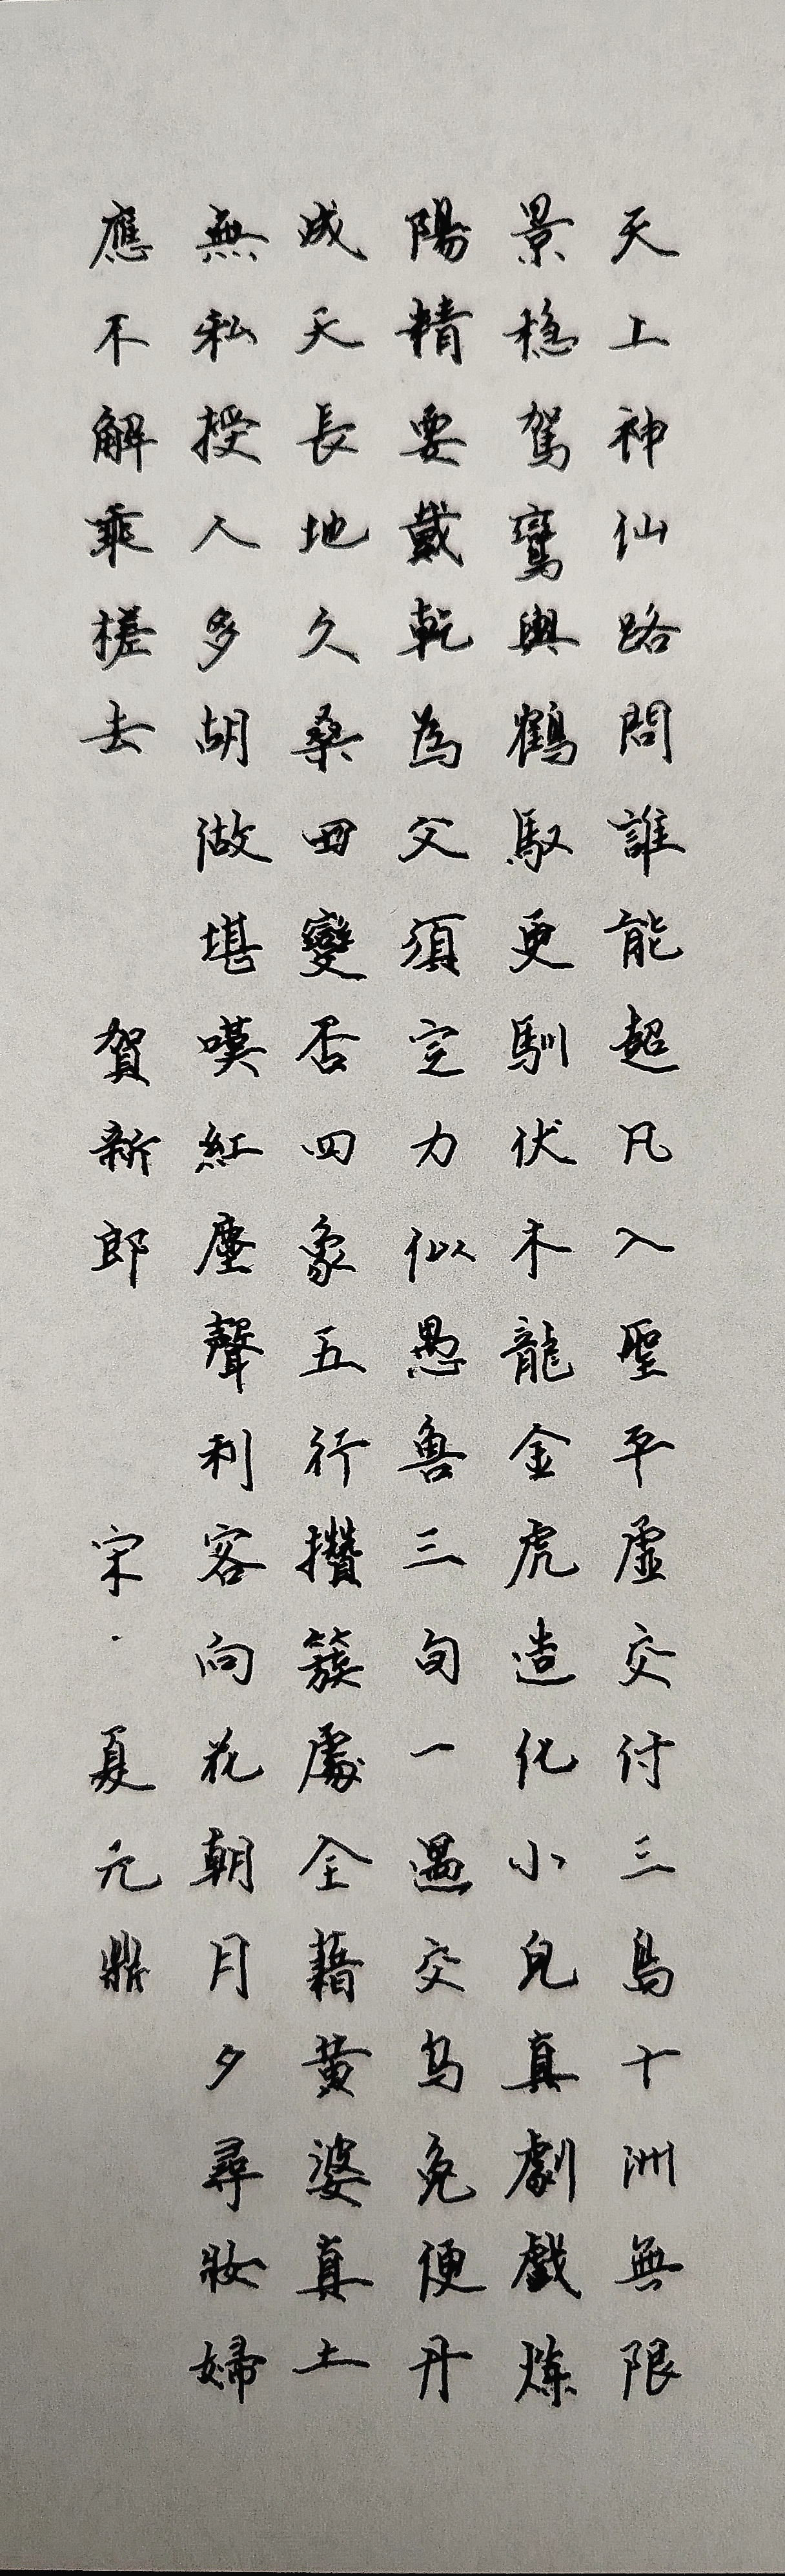 天上神仙路問誰能超凡入聖平虛交付三島十洲無限
景穩駕鸞輿鶴馭更馴伏木龍金虎造化小兒真劇戲煉
陽精要戴乾為父須定力似愚魯三旬一遇交烏兔便丹
成天長地久桑田變否四象五行攢簇處全藉黃婆真土
無私授人多胡做堪嘆紅塵聲利客向花朝月夕尋妝婦
應不解乘槎去 賀新郎 宋·夏元鼎